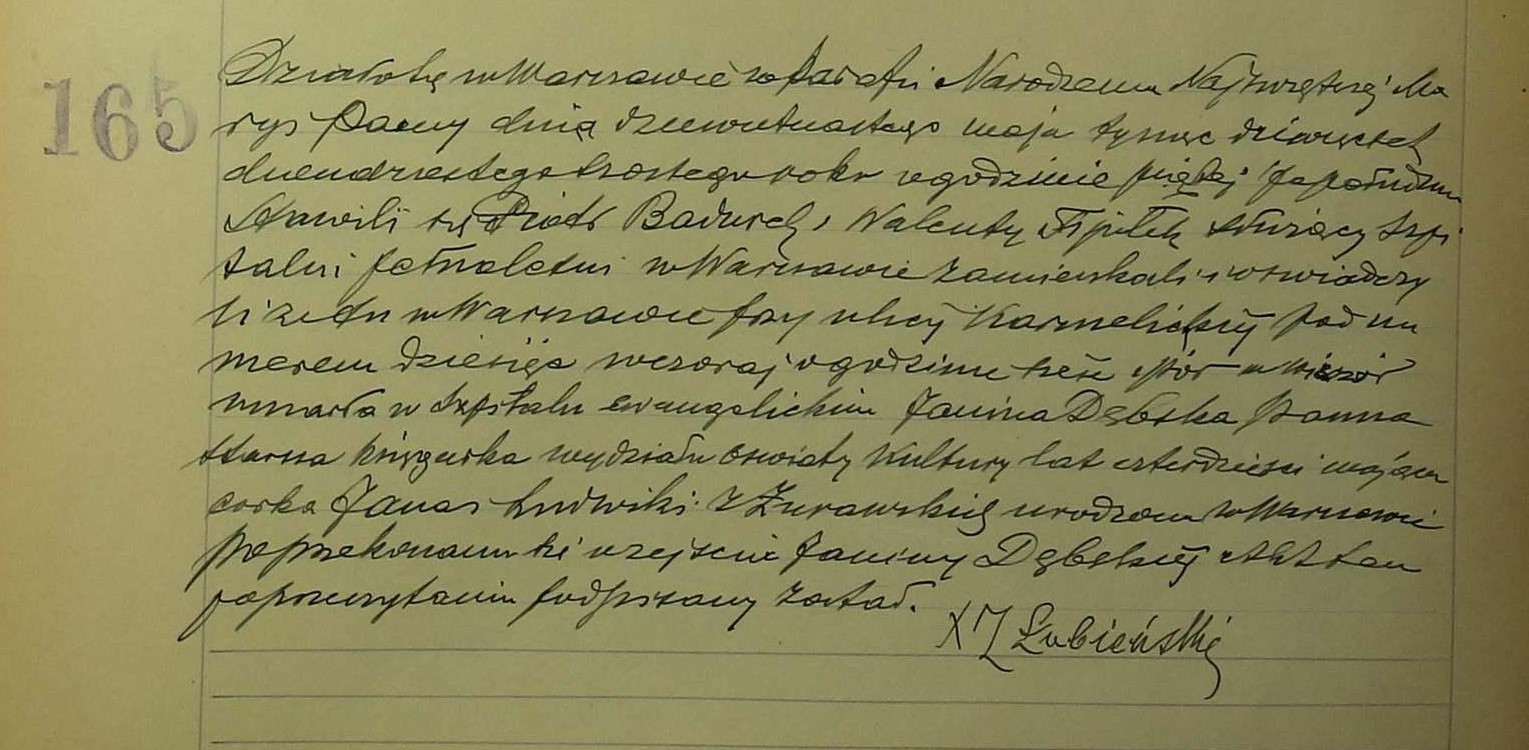 165
Działo się w Warszawie w parafii Narodzenia Najświętszej Ma
ryi Panny dnia dziewiętnastego maja tysiąc dziewięćset
dwudziestego szóstego roku o godzinie piątej po południu
Stawili się Piotr Badurek i Walenty służący szpi
talni pełnoletni w Warszawie zamieszkali i oświadczy
li że dn w Warszawie przy ulicy Karmelickiej pod nu
merem dziesięć wczoraj o godzinie sześć pół wieczór
umarła w szpitalu ewangelickim Janina Dębska panna
starsza wydziału oświaty Kultury lat czterdzieści mająca
córka Jana i Ludwiki z Żurawskich urodzona w Warszawie
po przekonaniu się o zejściu Janiny Dębskiej Akt ten
po przeczytaniu podpisany został.
X Z Łubieński